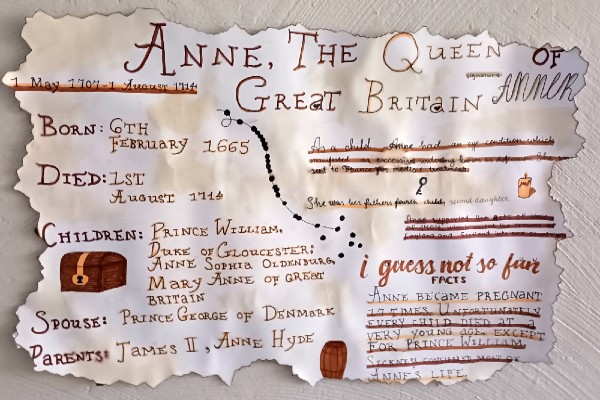 ANNE, THE QUEEN OF
GREAT BRITAIN
1 May 1707-1 August 1714
BORN: 6TH
FEBRUARY 1665
DIED: 1ST
AUGUST 1714
CHILDREN: PRINCE WILLIAM,
DUKE OF GLOUCESTER;
ANNE SOPHIA OLDENBURG,
MARY ANNE OF GREAT
BRITAIN
SPOUSE: PRINCE GEORGE OF DENMARK
PARENTS: JAMES II, ANNE HYDE
As a child Anne had an eye condition which
manifested as excessive watering
sent to France for medical treatment.
She was her fathers fourth child, second daughter.
Anne supported the Acts of
England and
i guess not so fun
FACTS
ANNE BECAME PREGNANT
17 TIMES. UNFORTUNATELY
EVERY CHILD DIED AT A
VERY YOUNG AGE EXCEPT
FOR PRINCE WILLIAM.
SICKNESS CONSUMED MOST OF
ANNE'S LIFE.